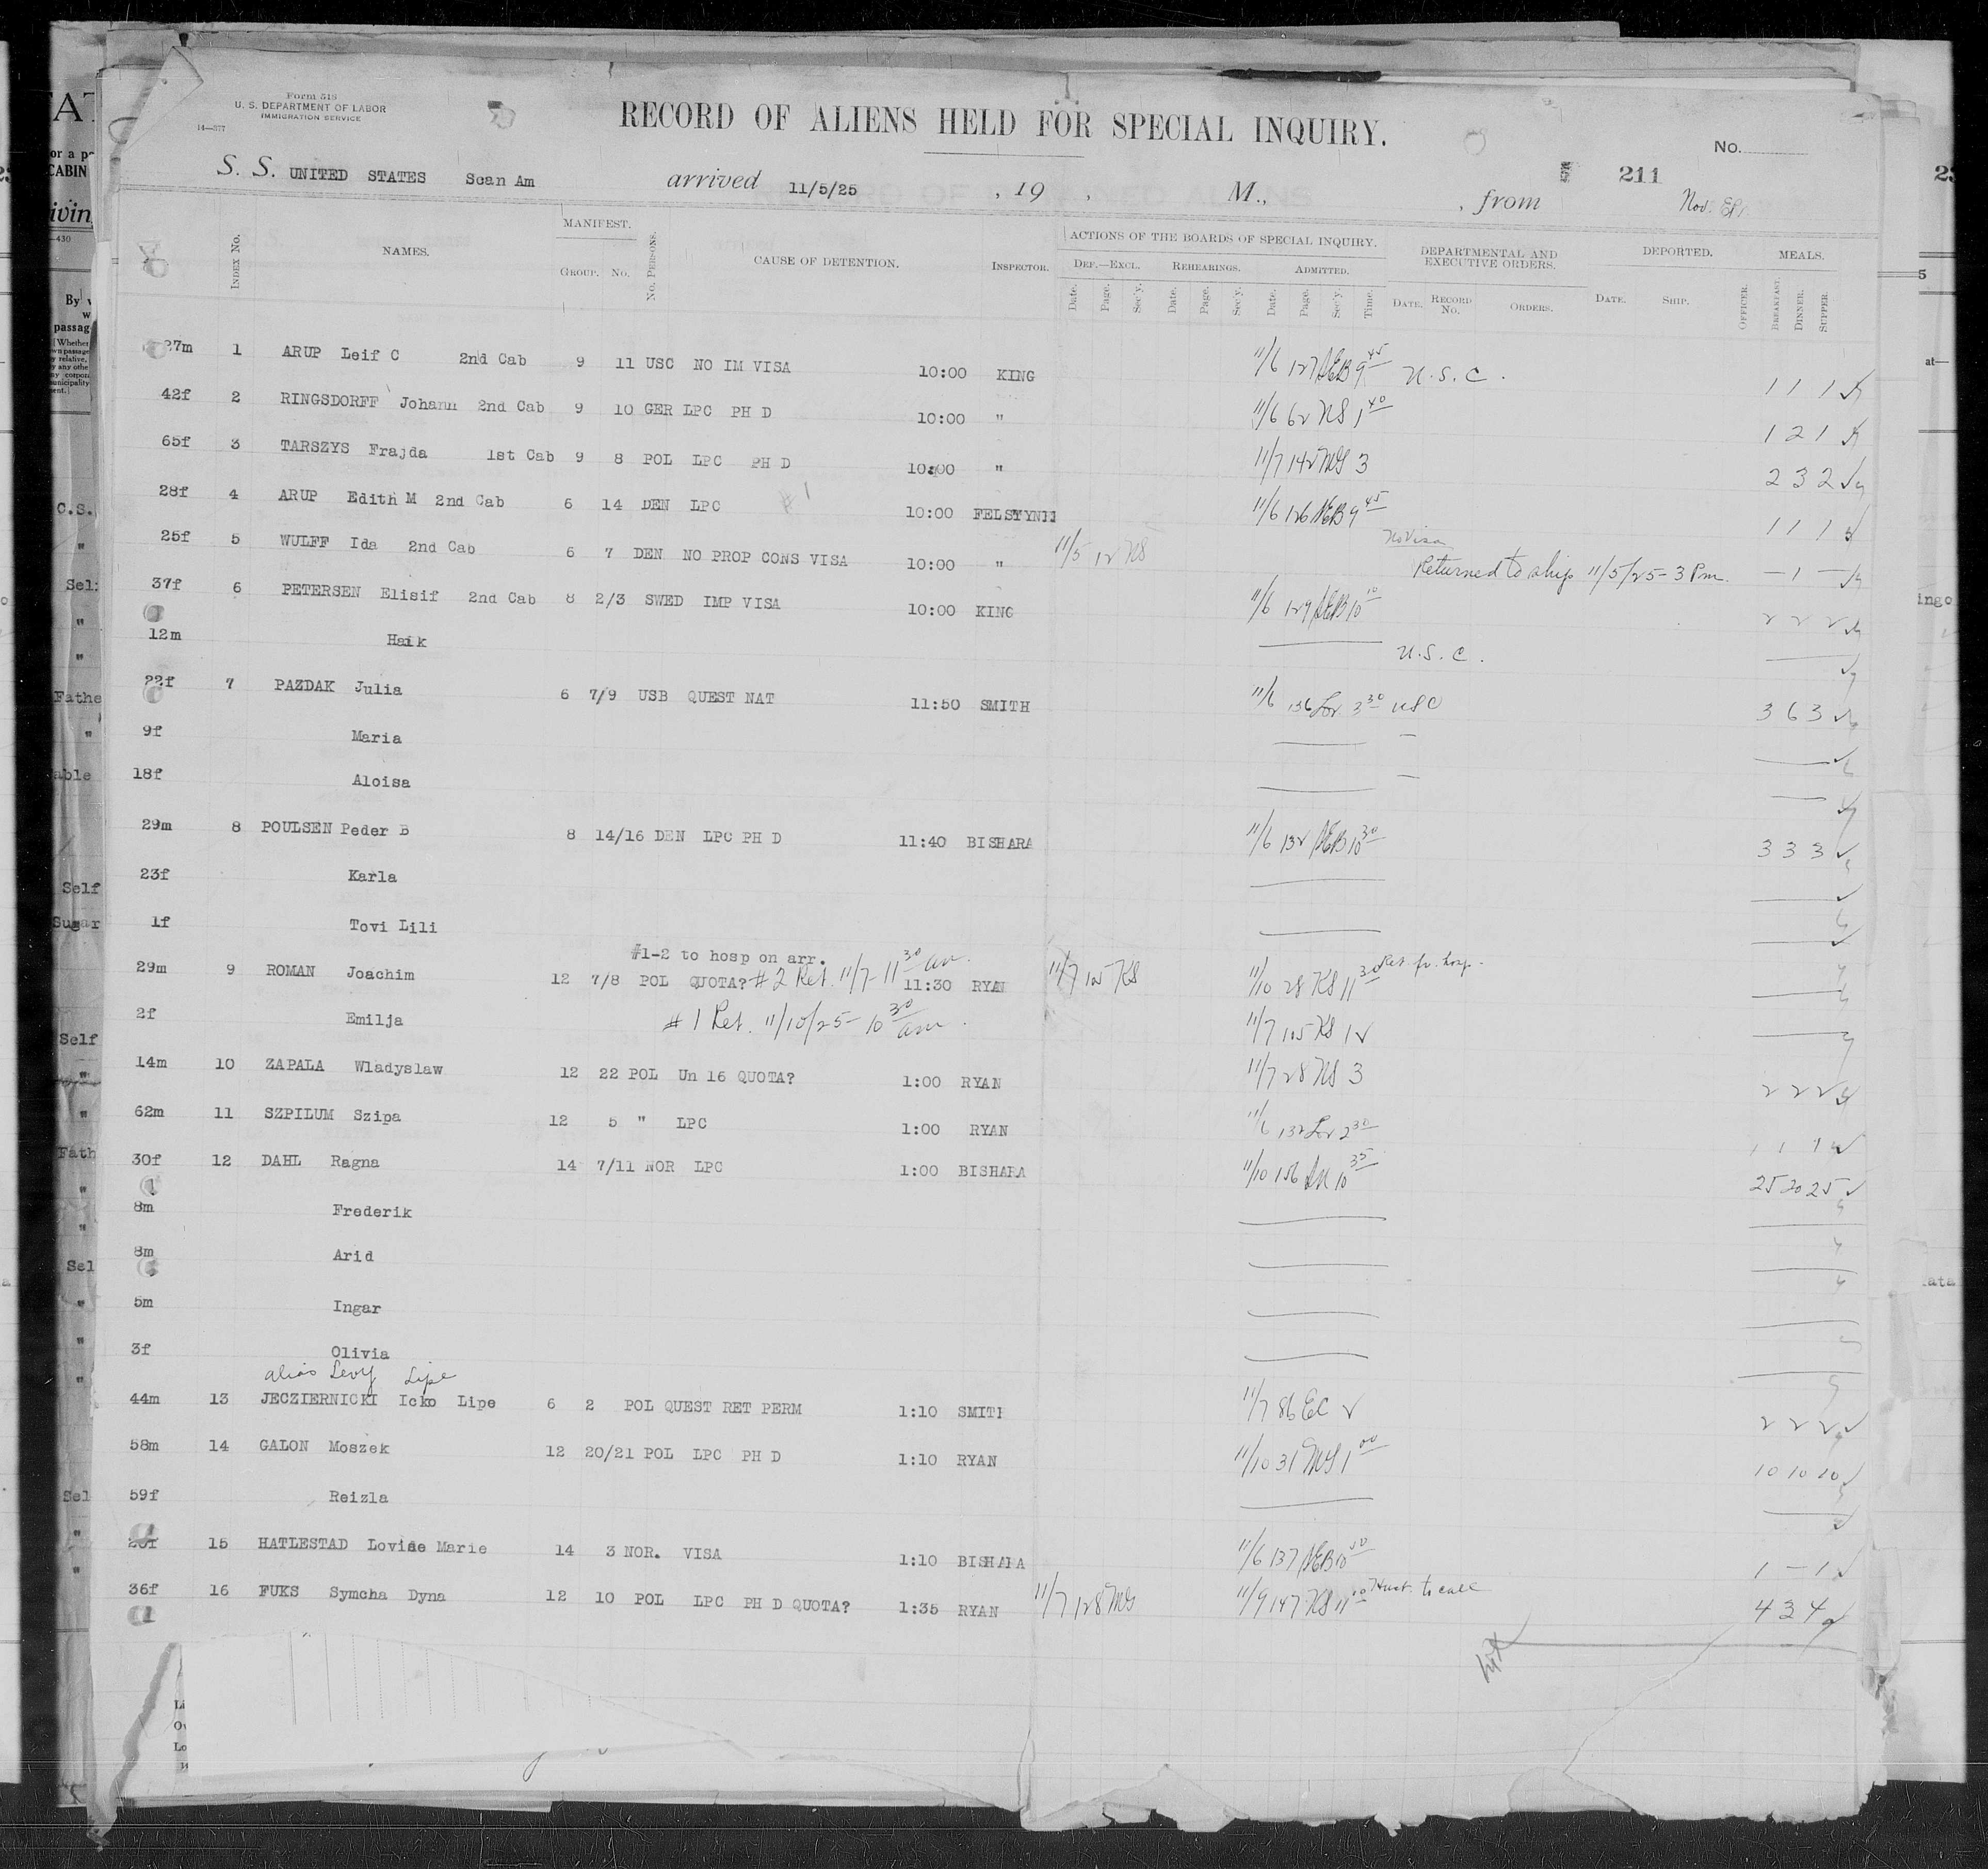 Form 518
U. S. DEPARTMENT OF LABOR
IMMIGRATION SERVICE
14—377
RECORD OF ALIENS HELD FOR SPECIAL INQUIRY.
No.
S. S. UNITED STATES Scan Am arrived 11/5/25, 19 , M., , from 211
Nov.
INDEX No. NAMES. MANIFEST. GROUP. No. No. PERSONS. CAUSE OF DETENTION. INSPECTOR. ACTIONS OF THE BOARDS OF SPECIAL INQUIRY. DEPARTMENTAL AND EXECUTIVE ORDERS. DEPORTED. MEALS.
DEF.—EXCL. REHEARINGS. ADMITTED.
Date. Page. Sec'y. Date. Page. Sec'y. Date. Page. Sec'y. Time. DATE. RECORD No. ORDERS. DATE. SHIP. OFFICER. BREAKFAST. DINNER. SUPPER.
27m 1 ARUP Leif C 2nd Cab 9 11 USC NO IM VISA 10:00 KING 11/6 127 AEB 9 45 U.S.C. 1 1 1
42f 2 RINGSDORFF Johann 2nd Cab 9 10 GER LPC PH D 10:00 " 11/6 62 NS 1 40 1 2 1
65f 3 TARSZYS Frajda 1st Cab 9 8 POL LPC PH D 10:00 " 11/7 142 MS 3 2 3 2
28f 4 ARUP Edith M 2nd Cab 6 14 DEN LPC #1 10:00 11/6 126 AEB 9 45 1 1 1
25f 5 WULFF Ida 2nd Cab 6 7 DEN NO PROP CONS VISA 10:00 " 11/5 12 NS No Visa
Returned to ship 11/5/25 - 3 Pm. — 1 —
37f 6 PETERSEN Elisif 2nd Cab 8 2/3 SWED IMP VISA 10:00 KING 11/6 129 AEB 10 10 2 2 2
12m Haik U.S.C.
22f 7 PAZDAK Julia 6 7/9 USB QUEST NAT 11:50 SMITH 11/6 136 3 30 USC 3 6 3
9f Maria
18f Aloisa
29m 8 POULSEN Peder B 8 14/16 DEN LPC PH D 11:40 BISHARA 11/6 132 AEB 10 30 3 3 3
23f Karla
1f Tovi Lili
#1-2 to hosp on arr.
29m 9 ROMAN Joachim 12 7/8 POL QUOTA? #2 Ret. 11/7-11 30 am. 11:30 RYAN 11/7 KS 11/10 28 KS 11 30 Ret. fr. hosp.
2f Emilja #1 Ret. 11/10/25 - 10 30 am. 11/7 105 KS 12
14m 10 ZAPALA Wladyslaw 12 22 POL Un 16 QUOTA? 1:00 RYAN 11/7 28 NS 3 2 2 2
62m 11 SZPILUM Szipa 12 5 " LPC 1:00 RYAN 11/6 132 2 30 1 1 1
30f 12 DAHL Ragna 14 7/11 NOR LPC 1:00 BISHARA 11/10 156 10 35 25 20 25
8m Frederik
8m Arid
5m Ingar
3f Olivia
alias Levy Lipe
44m 13 JECZIERNICKI Icko Lipe 6 2 POL QUEST RET PERM 1:10 SMITH 11/7 86 EC 2 2 2 2
58m 14 GALON Moszek 12 20/21 POL LPC PH D 1:10 RYAN 11/10 31 MS 1 00 10 10 10
59f Reizla
15 HATLESTAD Lovise Marie 14 3 NOR. VISA 1:10 BISHARA 11/6 137 AEB 10 1 — 1
36f 16 FUKS Symcha Dyna 12 10 POL LPC PH D QUOTA? 1:35 RYAN 11/7 128 MS 11/9 147 KS 11 to call 4 3 4